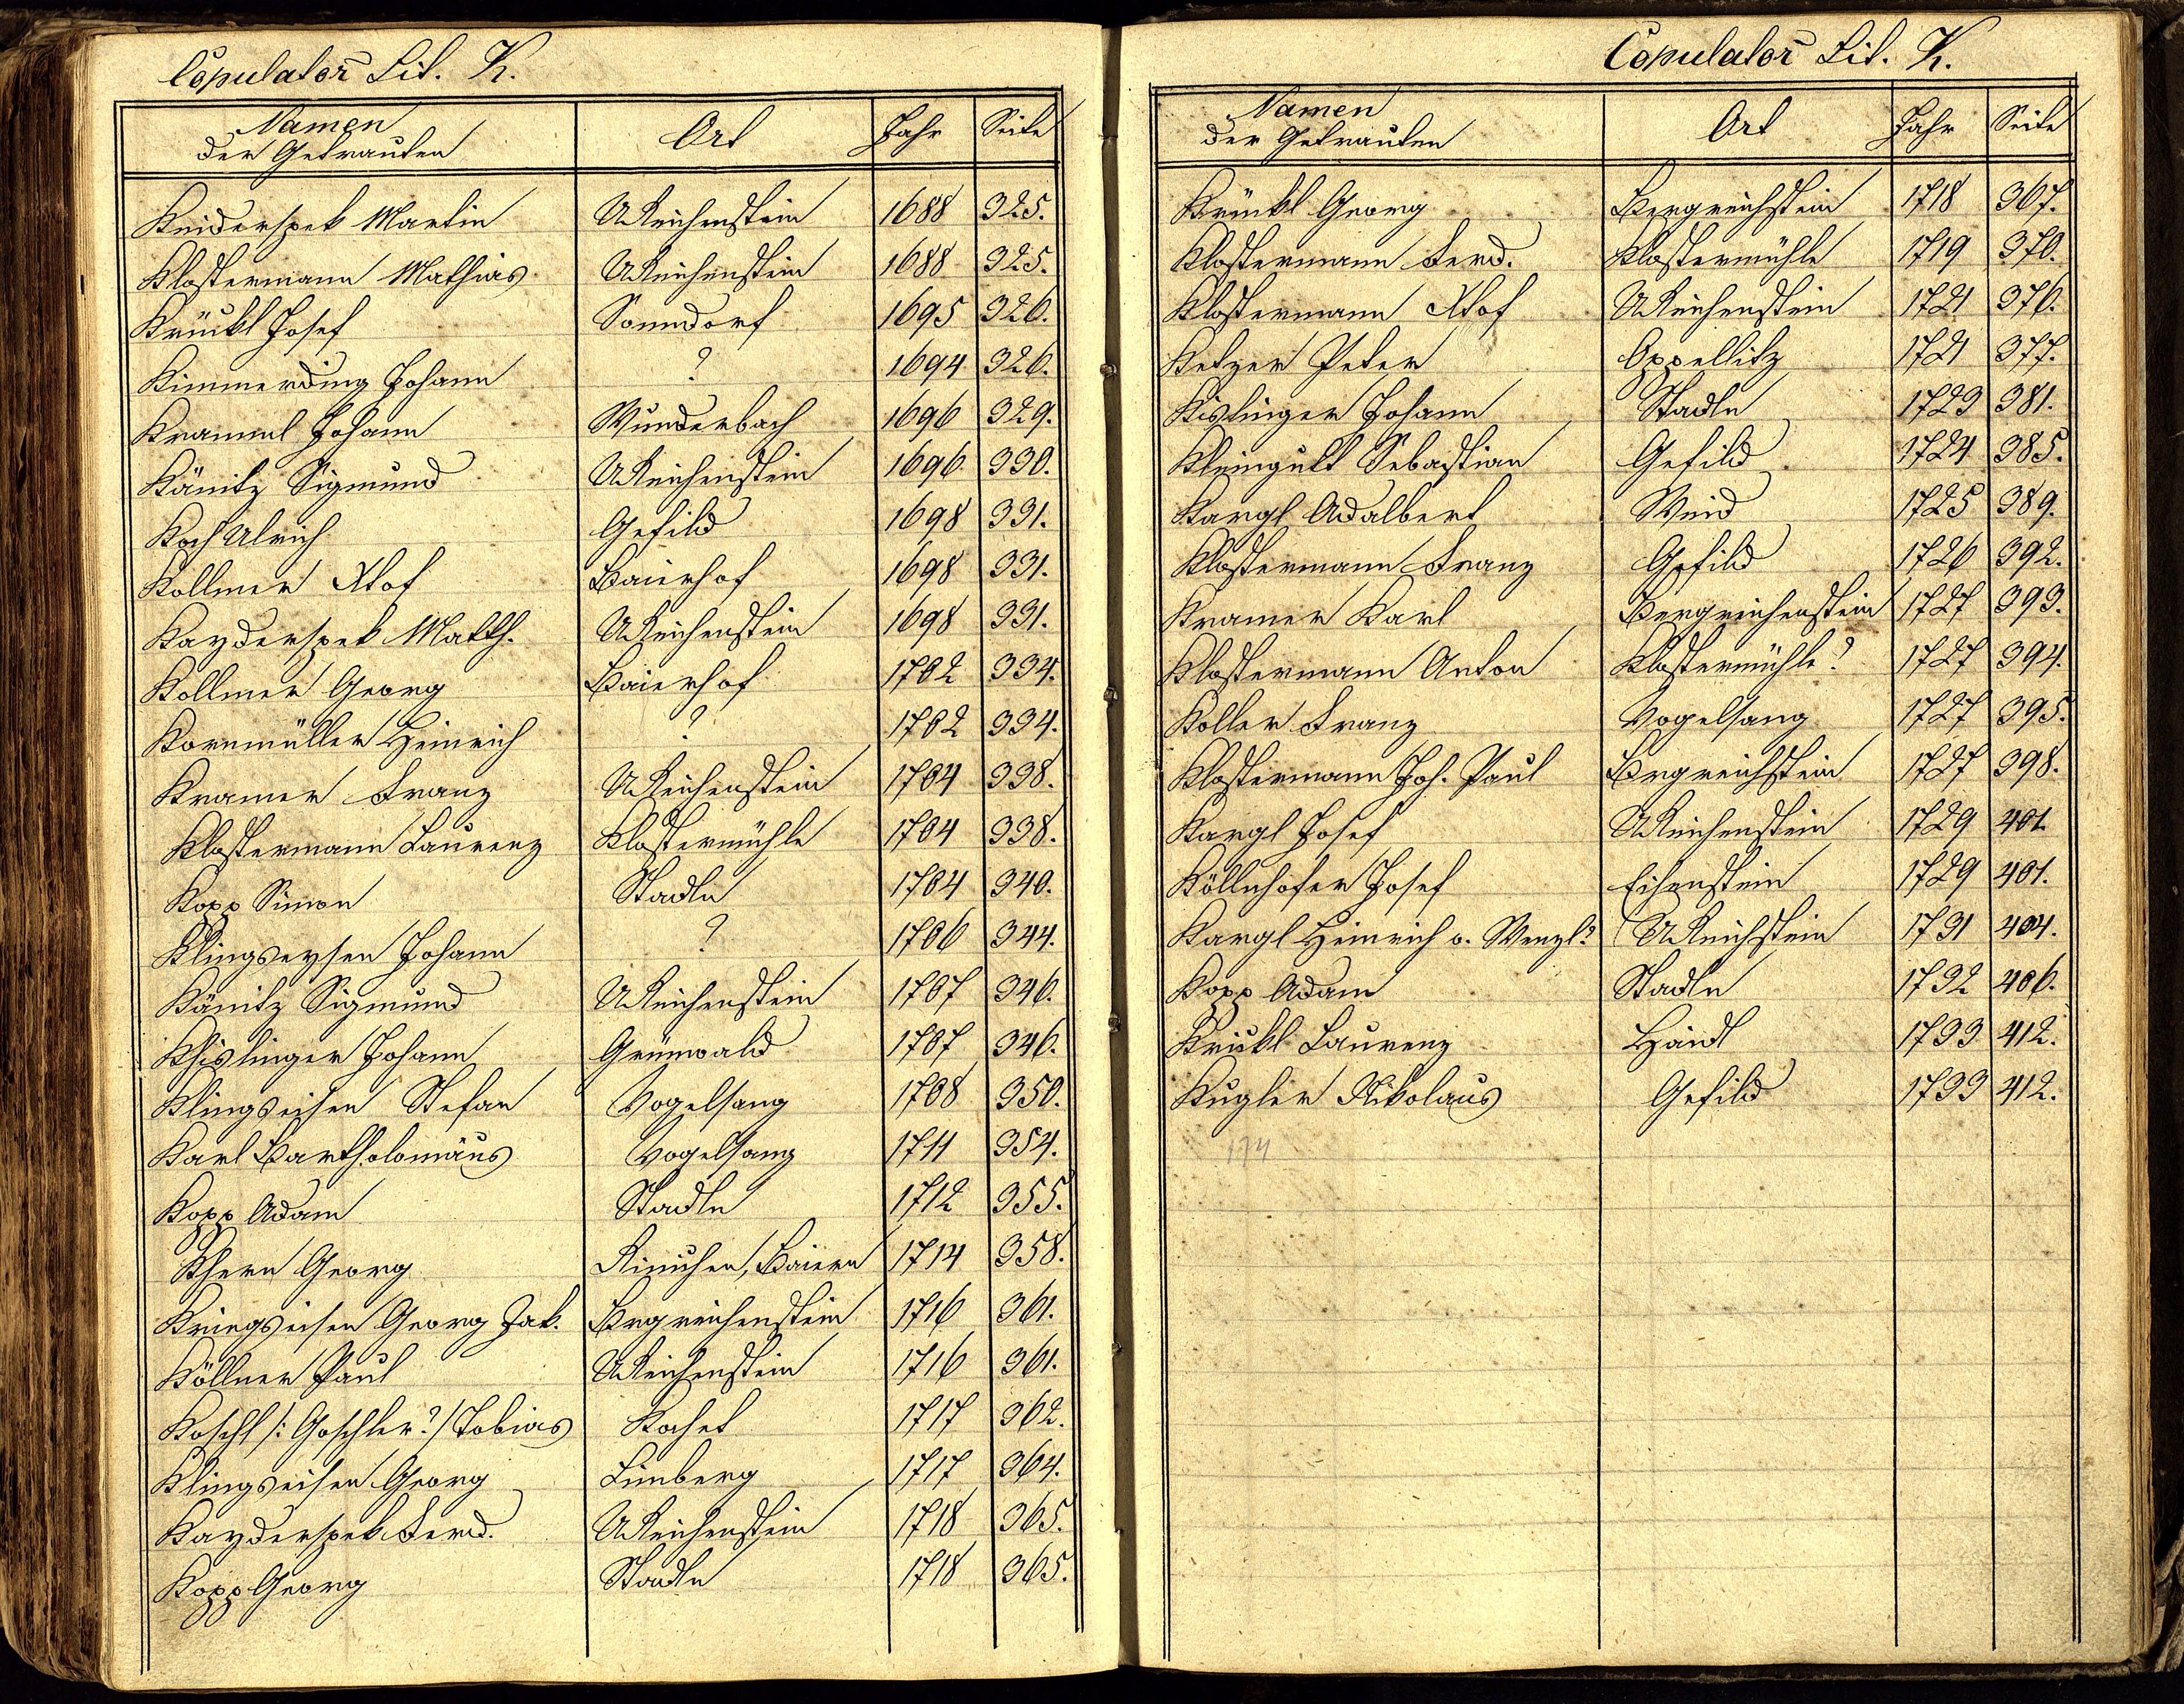 Copulator Lit. K.
Namen der Getrauten Ort Jahr Seite
Keiderspek Martin UReichenstein 1688 325.
Klostermann Mathias UReichenstein 1688 325.
Krückl Josef Sonndorf 1695 326.
Kimmerding Johann ? 1694 326.
Kramml Johann Wunderbach 1696 329.
Känitz Sigmund UReichenstein 1696 330.
Koch Ulrich Gefild 1698 331.
Kollmer Xtof Baierhof 1698 331.
Kayderspek Matth. UReichenstein 1698 331.
Kollmer Georg Baierhof 1702 334.
Kornmüller Heinrich ? 1702 334.
Kramer Franz UReichenstein 1704 338.
Klostermann Laurenz Klostermühle 1704 338.
Kopp Simon Stadln 1704 340.
Klingseysen Johann ? 1706 344.
Känitz Sigmund UReichenstein 1707 346.
Khislinger Johann Grünwald 1707 346.
Klingseisen Stefan Vogelsang 1708 350.
Karl Bartholomäus Vogelsang 1711 354.
Kopp Adam Stadln 1712 355.
Khern Georg Rinichen, Baiern 1714 358.
Kringseisen Georg Jak. Brgreichenstein 1716 361.
Köllner Paul UReichenstein 1716 361.
Koschl /: Goschler?/ Tobias Kochet 1717 362.
Klingseisen Georg Limberg 1717 364.
Kayderspek Ferd. UReichenstein 1718 365.
Kopp Georg Stadln 1718 365.
Copulator Lit. K.
Namen der Getrauten Ort Jahr Seite
Krückl Georg Bergreichstein 1718 367.
Klostermann Ferd. Klostermühle 1719 370.
Klostermann Xtof UReichenstein 1721 376.
Ketzer Peter Oppellitz 1721 377.
Kislinger Johann Stadln 1723 381.
Kleingült Sebastian Gefild 1724 385.
Kargl Adalbert Weid 1725 389.
Klostermann Franz Gefild 1726 392.
Kramer Karl Bergreichenstein 1727 393.
Klostermann Anton Klostermühle? 1727 394.
Koller Franz Vogelsang 1727 395.
Klostermann Joh. Paul Brgreichstein 1727 398.
Kargl Josef UReichenstein 1729 401.
Köllnhofer Josef Eisenstein 1729 401.
Kargl Heinrich o. Wenzl? UReichstein 1731 404.
Kopp Adam Stadln 1732 406.
Krickl Laurenz Haidl 1733 412.
Kugler Nikolaus Gefild 1733 412.
174